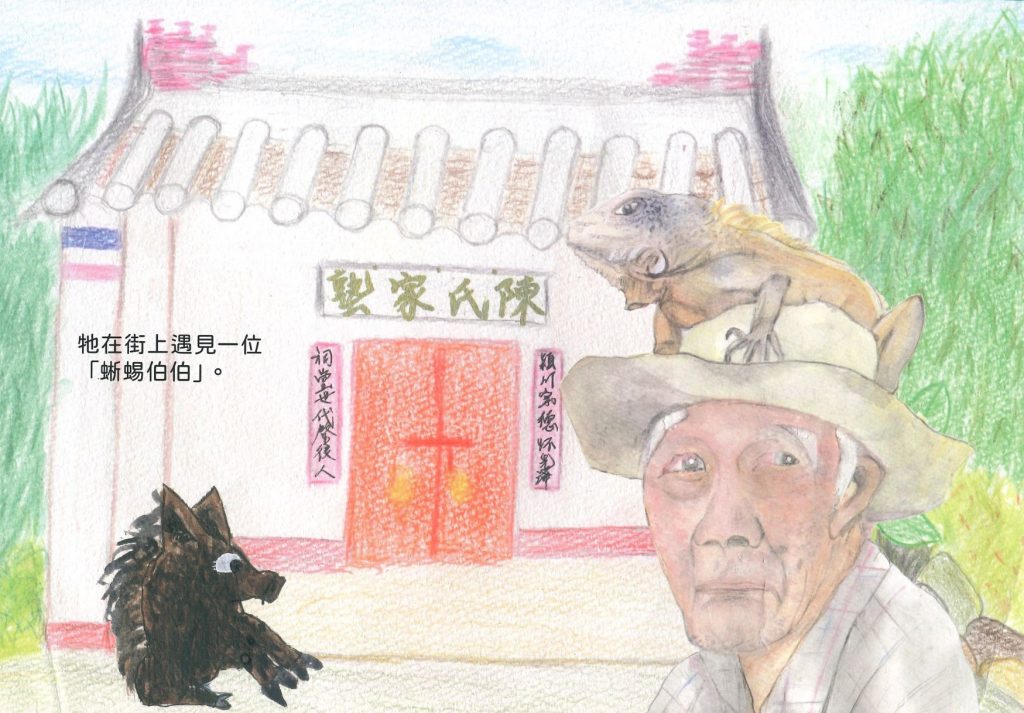 陳氏家塾
潁川宗德怀光
祠堂世代啓後人
牠在街上遇見一位
「蜥蜴伯伯」。